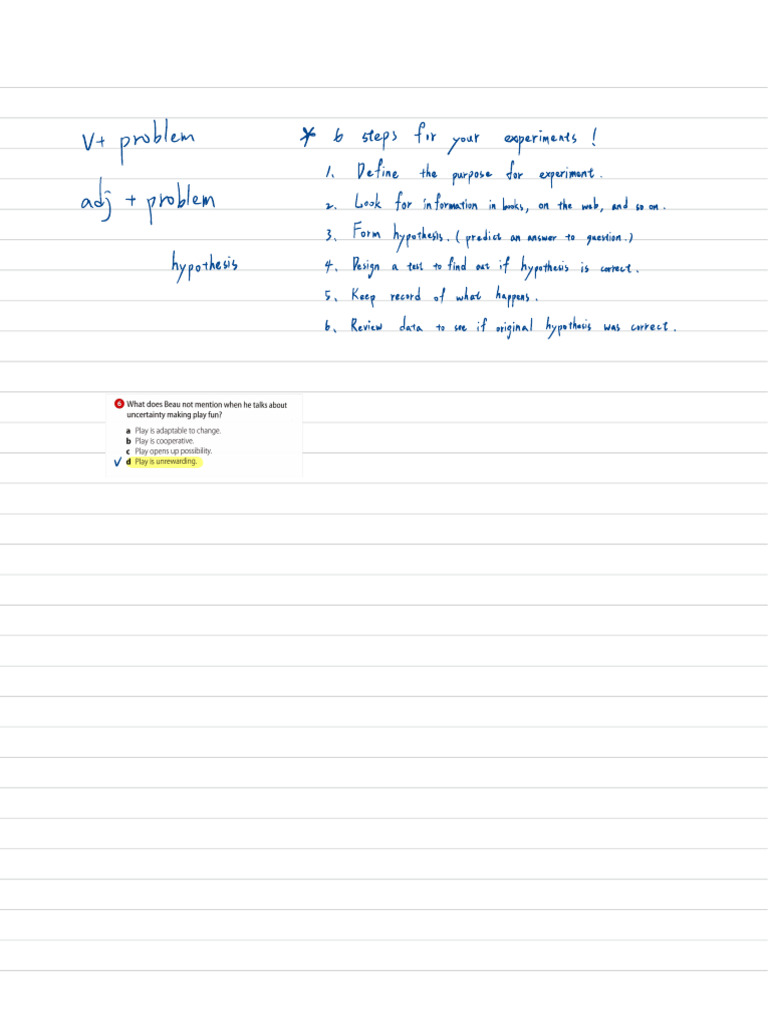 V+ problem
adj + problem
hypothesis
* 6 steps for your experiments !
1. Define the purpose for experiment.
2. Look for information in books, on the web, and so on.
3. Form hypothesis. (predict an answer to question.)
4. Design a test to find out if hypothesis is correct.
5. Keep record of what happens.
6. Review data to see if original hypothesis was correct.
6 What does Beau not mention when he talks about
uncertainty making play fun?
a Play is adaptable to change.
b Play is cooperative.
c Play opens up possibility.
✓ d Play is unrewarding.